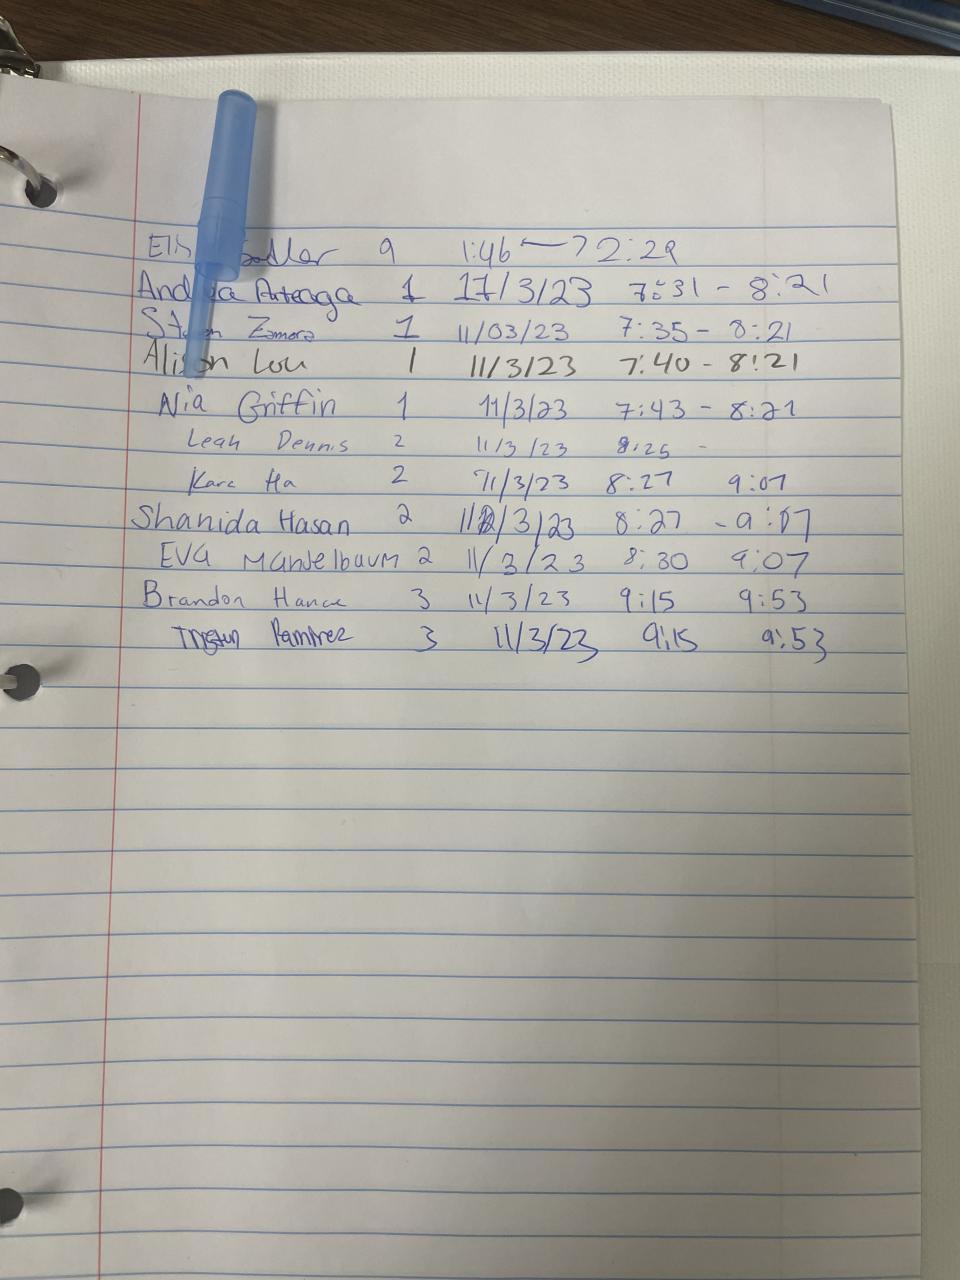 9 1:46 → 2:29
Arteaga 1 11/3/23 7:31 - 8:21
Zamora 1 11/03/23 7:35 - 8:21
Alison Lou 1 11/3/23 7:40 - 8:21
Nia Griffin 1 11/3/23 7:43 - 8:21
Leah Dennis 2 11/3/23 8:25 -
Kara Ha 2 11/3/23 8:27 9:07
Shanida Hasan 2 11/3/23 8:27 - 9:07
EVA MANDelbAUM 2 11/3/23 8:30 9:07
Brandon Hance 3 11/3/23 9:15 9:53
Ramirez 3 11/3/23 9:15 9:53